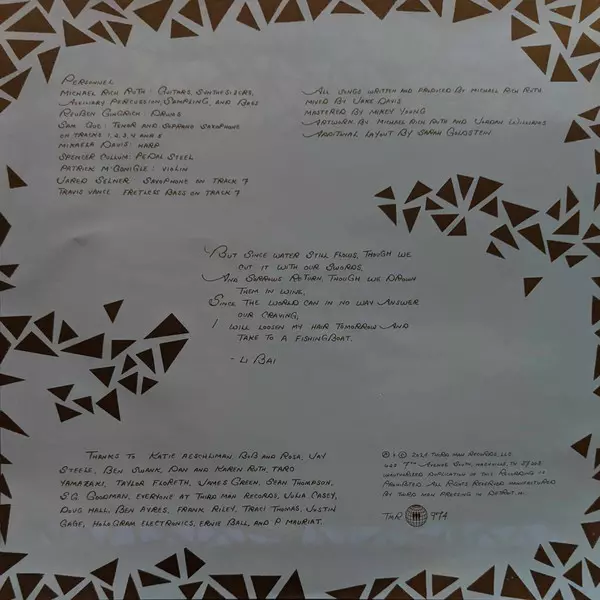 Personnel
Michael Rich Ruth: Guitars, Synthesizers,
Auxiliary Percussion, Sampling, and Bass
Reuben Gingrich: Drums
Sam Que: Tenor and Soprano Saxophone
on tracks 1, 2, 3, 4 and 5
Mikaela Davis: Harp
Spencer Cullum: Pedal Steel
Patrick M'Gonigle: Violin
Jared Selner: Saxophone on Track 7
Travis Vance: Fretless Bass on Track 7
All songs written and produced by Michael Rich Ruth
Mixed by Jake Davis
Mastered by Mikey Young
Artwork by Michael Rich Ruth and Jordan Williams
Additional Layout by Sarah Goldstein
But since water still flows, though we
cut it with our swords,
And sorrows return, though we drown
them in wine,
Since the world can in no way answer
our craving,
I will loosen my hair tomorrow and
take to a fishingboat.
- Li Bai
Thanks to Katie Aeschliman, Bob and Rosa, Jay
Steele, Ben Swank, Dan and Karen Ruth, Taro
Yamazaki, Taylor Floreth, James Green, Sean Thompson,
S.G. Goodman, everyone at Third Man Records, Julia Casey,
Doug Mall, Ben Ayres, Frank Riley, Traci Thomas, Justin
Gage, Hologram Electronics, Ernie Ball, and P Mauriat.
℗ & © 2024 Third Man Records, LLC
623 7th Avenue South, Nashville, TN 37203
Unauthorized duplication of this Recording is
Prohibited. All Rights Reserved. Manufactured
by Third Man Pressing in Detroit, MI.
TMR 974